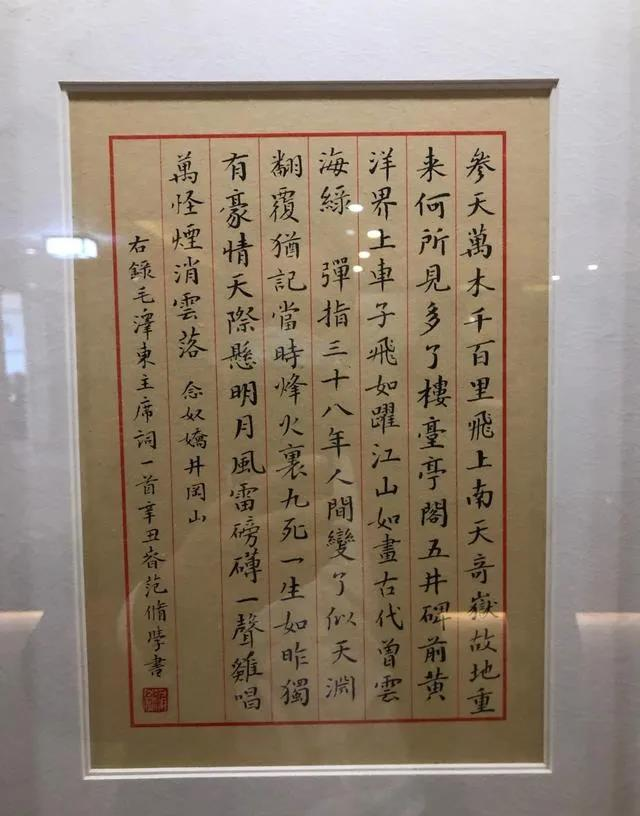 參天萬木千百里飛上南天竒嶽故地重
来何所見多了樓臺亭閣五井碑前黄
洋界上車子飛如躍江山如畫古代曾雲
海緑　彈指三十八年人間變了似天淵
翻覆猶記當時烽火裏九死一生如昨獨
有豪情天際懸明月風雷磅礴一聲雞唱
萬怪煙消雲落　念奴嬌井岡山
右錄毛澤東主席詞一首辛丑春范脩學書